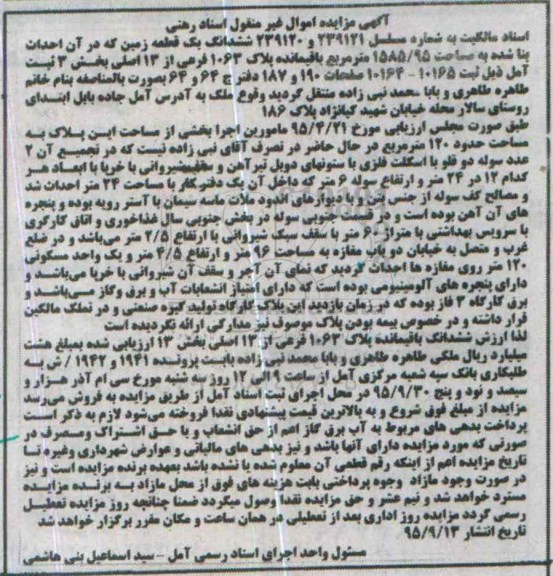 آگهی مزایده اموال غیر منقول اسناد رهنی
اسناد مالکیت به شماره مسلسل ۲۳۹۱۲۱ و ۲۳۹۱۲۰ ششدانگ یک قطعه زمین که در آن احداث
بنا شده به مساحت ۱۵۸۵/۹۵ مترمربع باقیمانده پلاک ۱۰۶۳ فرعی از ۱۳ اصلی بخش ۳ ثبت
آمل ذیل ثبت ۱۰۱۶۵- ۱۰۱۶۴ صفحات ۱۹۰ و ۱۸۷ دفتر ج ۶۴ و ۶۴ بصورت بالمناصفه بنام خانم
طاهره طاهری و بابا محمد نبی زاده منتقل گردید وقوع ملک به آدرس آمل جاده بابل ابتدای
روستای سالار محله خیابان شهید کیانژاد پلاک ۱۸۶
طبق صورت مجلس ارزیابی مورخ ۹۵/۴/۲۱ مامورین اجرا بخشی از مساحت این پلاک به
مساحت حدود ۱۲۰ مترمربع در حال حاضر در تصرف آقای نبی زاده نیست که در تجمیع آن ۲
عدد سوله دو قلو با اسکلت فلزی با ستونهای دوبل تیرآهن و سقف شیروانی با خرپا با ابعاد هر
کدام ۱۲ در ۲۴ متر و ارتفاع سوله ۶ متر که داخل آن یک دفتر کار با مساحت ۲۴ متر احداث شد
و مصالح کف سوله از جنس بتن و با دیوارهای اندود ملات ماسه سیمان با آستر رویه بوده و پنجره
های آن آهن بوده است و در قسمت جنوبی سوله در بخش جنوبی سال غذاخوری و اتاق کارگری
با سرویس بهداشتی با متراژ ۶۰ متر با سقف سبک شیروانی با ارتفاع ۲/۵ متر می‌باشد و در ضلع
غرب و متصل به خیابان دو باب مغازه به مساحت ۹۶ متر و ارتفاع ۴/۵ متر و یک واحد مسکونی
۱۲۰ متر روی مغازه ها احداث گردید که نمای آن آجر و سقف آن شیروانی با خرپا می‌باشد و
دارای پنجره های آلومینیومی بوده است که دارای امتیاز انشعابات آب و برق وگاز می‌باشد و
برق کارگاه ۳ فاز بوده که در زمان بازدید این پلاک کارگاه تولید گیره صنعتی و در تملک مالکین
قرار داشته و در خصوص بیمه بودن پلاک موصوف نیز مدارکی ارائه نگردیده است
لذا ارزش ششدانگ باقیمانده پلاک ۱۰۶۳ فرعی از ۱۳ اصلی بخش ۱۳ ارزیابی شده بمبلغ هشت
میلیارد ریال ملکی طاهره طاهری و بابا محمد نبی زاده بابت پرونده ۱۹۴۱ و ۱۹۴۲ / ش به
طلبکاری بانک سپه شعبه مرکزی آمل از ساعت ۹ الی ۱۲ روز سه شنبه مورخ سی ام آذر هزار و
سیصد و نود و پنج ۹۵/۹/۳۰ در محل اجرای ثبت اسناد آمل از طریق مزایده به فروش می‌رسد
مزایده از مبلغ فوق شروع و به بالاترین قیمت پیشنهادی نقدا فروخته می‌شود لازم به ذکر است
پرداخت بدهی های مربوط به آب برق گاز اعم از حق انشعاب و یا حق اشتراک ومصرف در
صورتی که مورد مزایده دارای آنها باشد و نیز بدهی های مالیاتی و عوارض شهرداری وغیره تا
تاریخ مزایده اعم از اینکه رقم قطعی آن معلوم شده یا نشده باشد بعهده برنده مزایده است و نیز
در صورت وجود مازاد وجوه پرداختی بابت هزینه های فوق از محل مازاد به برنده مزایده
مسترد خواهد شد و نیم عشر و حق مزایده نقدا وصول میگردد ضمنا چنانچه روز مزایده تعطیل
رسمی گردد مزایده روز اداری بعد از تعطیلی در همان ساعت و مکان مقرر برگزار خواهد شد
تاریخ انتشار ۹۵/۹/۱۳
مسئول واحد اجرای اسناد رسمی آمل - سید اسماعیل بنی هاشمی